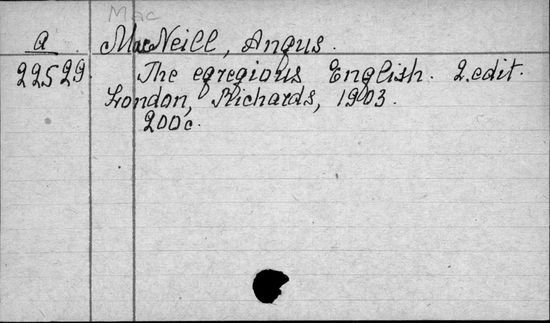 Mac
a MacNeill, Angus.
22529. The egregious English. 2.edit.
London, Richards, 1903.
200c.